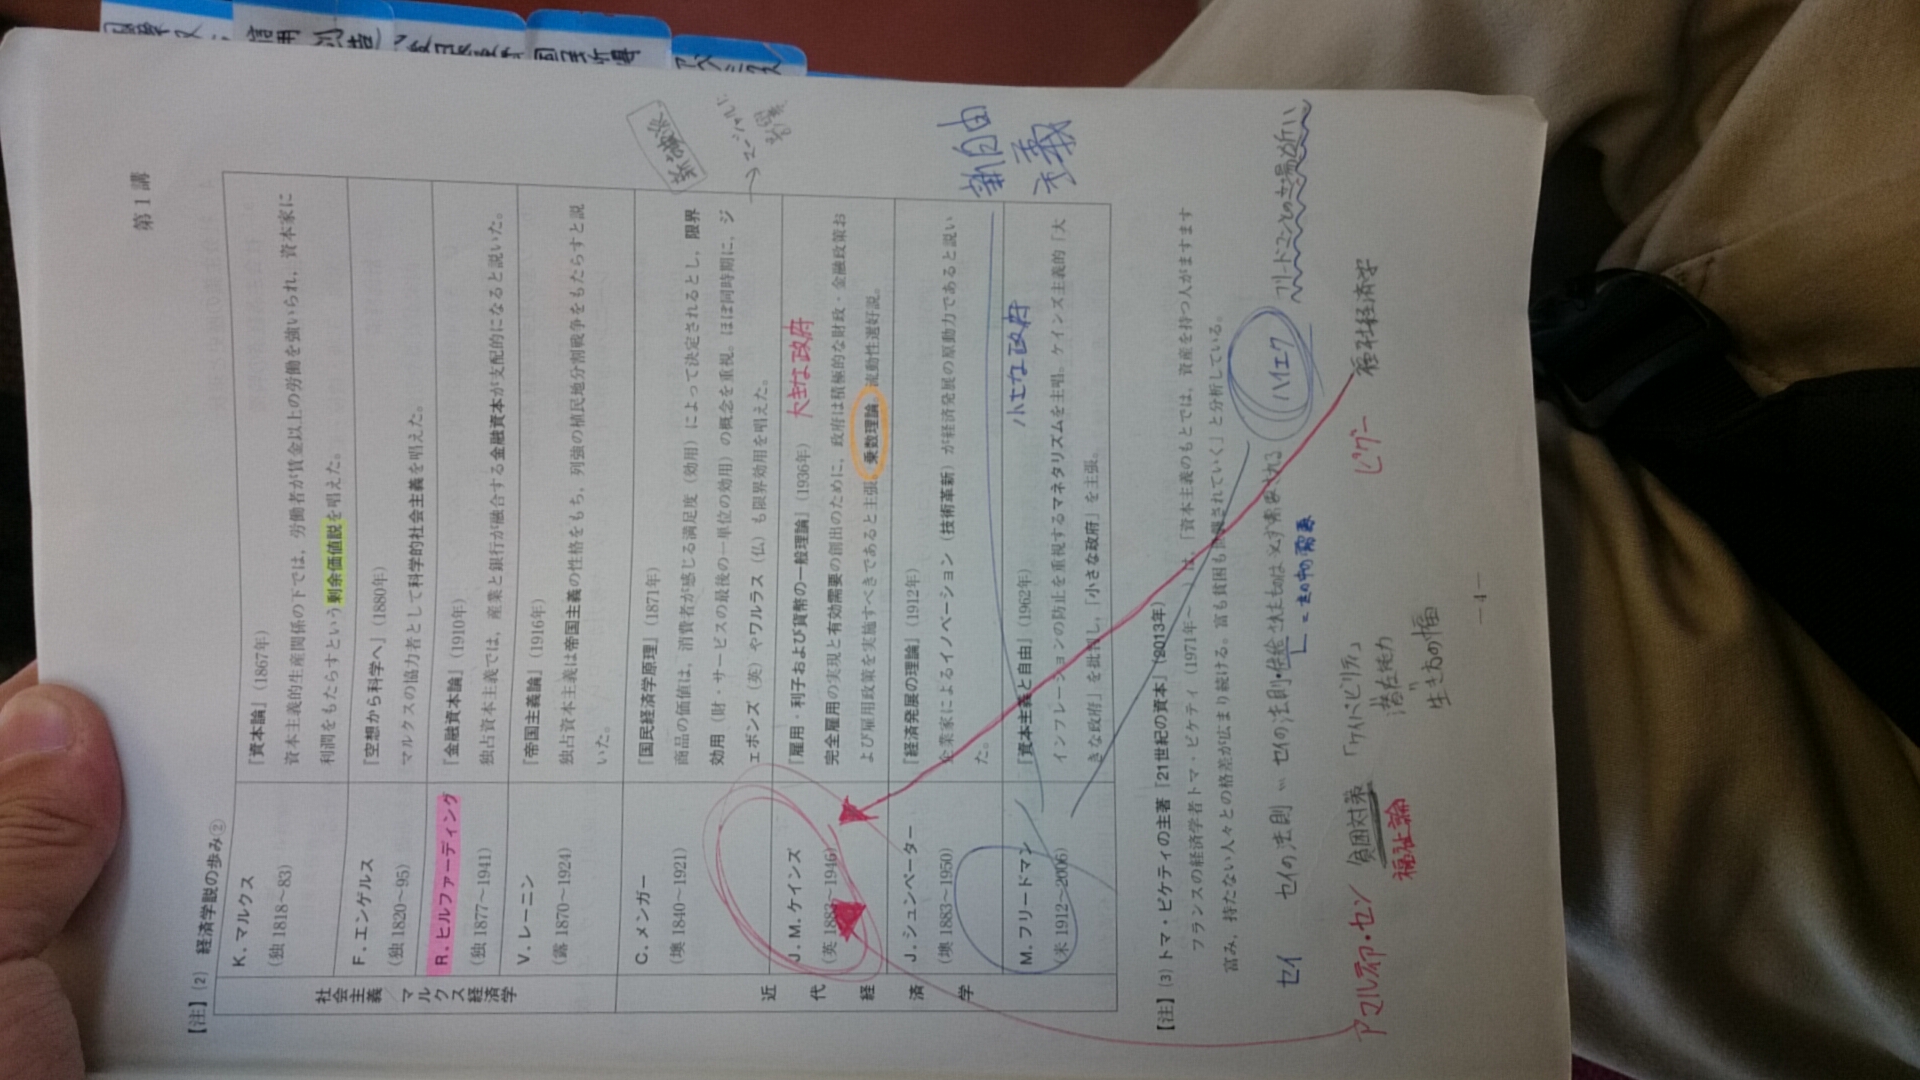 第1講
【注】(2) 経済学説の歩み②
社会主義 マルクス経済学
K.マルクス
(独 1818~83)
『資本論』(1867年)
資本主義的生産関係の下では,労働者が賃金以上の労働を強いられ,資本家に
利潤をもたらすという剰余価値説を唱えた。
F.エンゲルス
(独 1820~95)
『空想から科学へ』(1880年)
マルクスの協力者として科学的社会主義を唱えた。
R.ヒルファーディング
(独 1877~1941)
『金融資本論』(1910年)
独占資本主義では,産業と銀行が融合する金融資本が支配的になると説いた。
V.レーニン
(露 1870~1924)
『帝国主義論』(1916年)
独占資本主義は帝国主義の性格をもち,列強の植民地分割戦争をもたらすと説
いた。
近代経済学
C.メンガー
(墺 1840~1921)
『国民経済学原理』(1871年)
商品の価値は,消費者が感じる満足度(効用)によって決定されるとし,限界
効用(財・サービスの最後の一単位の効用)の概念を重視。ほぼ同時期に,ジ
ェボンズ(英)やワルラス(仏)も限界効用を唱えた。
J.M.ケインズ
(英 1883~1946)
『雇用・利子および貨幣の一般理論』(1936年)
大きな政府
完全雇用の実現と有効需要の創出のために,政府は積極的な財政・金融政策お
よび雇用政策を実施すべきであると主張。乗数理論,流動性選好説。
J.シュンペーター
(墺 1883~1950)
『経済発展の理論』(1912年)
企業家によるイノベーション(技術革新)が経済発展の原動力であると説い
た。
M.フリードマン
(米 1912~2006)
『資本主義と自由』(1962年)
小さな政府
インフレーションの防止を重視するマネタリズムを主唱。ケインズ主義的「大
きな政府」を批判し,「小さな政府」を主張。
新自由
主義
【注】(3) トマ・ピケティの主著『21世紀の資本』(2013年)
フランスの経済学者トマ・ピケティ(1971年~)は,「資本主義のもとでは,資産を持つ人がますます
富み,持たない人々との格差が広まり続ける。富も貧困も世襲されていく」と分析している。
セイ セイの法則 = セイの法則・供給されたものは必ず需要される
ハイエク フリードマンとの立場近い
アマルティア・セン 貧困対策 「ケイパビリティ」
福祉論
潜在能力
生き方の幅
ピグー 福祉経済学
—4—